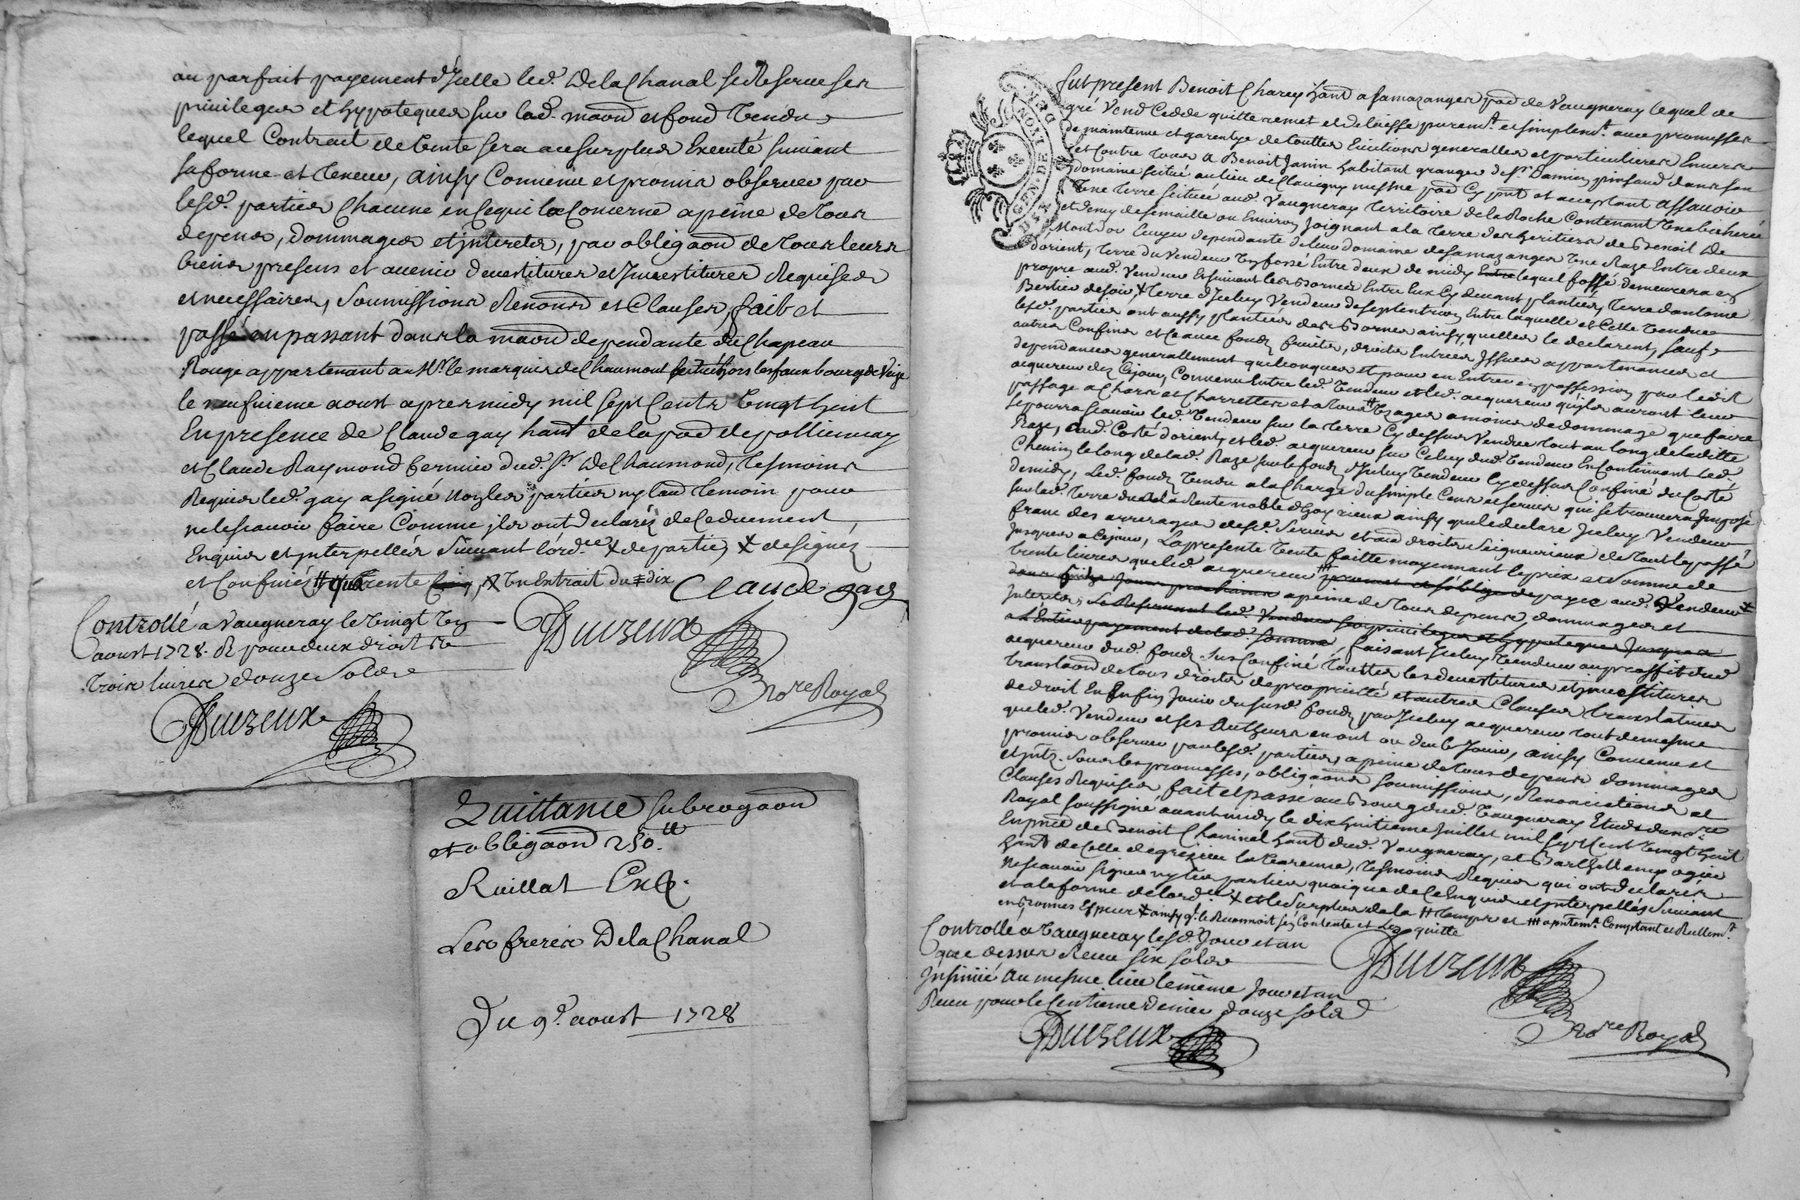 au parfait payement d'Icelle led. Delachanal se Reserve ses
privileges et hypoteques sur lad. maon et fond Vendu
lequel Contrait de Vente sera au surplus Executé suivant
sa forme et teneur, ainsy Convenu et promis observer par
lesd. parties Chacune en Cequi la Concerne a peine de tous
depens, dommages et Interets, par obligaon de tous leurs
biens presens et avenir devestitures et Investitures Requises
et necessaires, soumissions Renons et Clauses, fait et
passé en passant dans la maon dependante du Chapeau
Rouge appartenant a Mr. le marquis de Chaumont hors les fauxbourg de Vaize
le neufvieme aoust apres midy mil sept Cents Vingt huit
En presence de Claude gay hant. de la pad de pollionnay
et Claude Raymond fermier dud. Sr. De Chaumond, tesmoins
Requis led. gay a signé non les parties ny laud temoin pour
ne le scavoir faire Comme ils ont declarés de Ceduement
Enquis et interpellés suivant l'ord.ce
et Confinés quarente
Claude gay
Controllé a Vaugneray le Vingt
aoust 1728. R pour deux droits
trois livres douze Solds
Duvzeux
No.re Royal
Duvzeux
Quittance subrogaon
et obligaon 250.ll
Ruillat
Les freres Delachanal
Du 9e. aoust 1728
DE LYON GEN
Fut present Benoit Charey hant a samazange pad de Vaugneray lequel de
gré Vend Cedde quitte remet et delaisse purem.t et simplem.t avec promesses
de maintenue et garentye de touttes Evictions generalles et particulieres Envers
et Contre tous a Benoit Janin habitant granger de Sr. pinsaud dans son
domaine scitué au lieu de Clavigny mesme pad Cy pnt et acceptant assavoir
Une terre scituée aud. Vaugneray territoire de la Roche Contenant
et demy de semaille ou Environ Joignant a la terre des heritiers de Benoit De
dependante de leur domaine de samazange Une Raze Entre deux
d'orient, terre du Vendeur Un fossé Entre deux de midy lequel fossé demeurera
propre aud. Vendeur Et suivant les bornes Entre Eux Cy devant plantées, terre d'antome
Bertier de soir terre d'Iceluy Vendeur de septentrion Entre laquelle et Celle Vendue
lesd. parties ont aussy plantées des Bornes ainsy qu'elles le declarent, sauf
autres Confins et avec fonds fruits, droits Entrées Issues appartenances et
dependances generallement quelconques et pour en Entrer en possession par led
acquereur dez Cejour, Convenu Entre led. Vendeur et led. acquereur qu'ils auront leur
passage a Chars et Charrettes et a tous Usages a moins de dommage que faire
se pourra scavoir led. Vendeur sur la terre Cy dessus Vendue tout au long de ladite
Raze, aud. Costé d'orient, et led. acquereur sur Celuy dud. Vendeur En Continuant led.
Chemin le long de lad. Raze sur le fond d'Iceluy Vendeur Cy dessus Confiné du Costé
de midy, Led. fond Vendu a la Charge du simple Cens et servis qui se trouvera Imposé
sur lad. terre deub a la Rente noble d'hoyrieux ainsy que le declare Iceluy Vendeur
franc des arrerages desd. Servis et aud droits Seigneuriaux de tout le passé
Jusques a Cejour, La presente Vente faitte moyennant le prix et somme de
trente livres que led. acquereur promet et s'oblige de payer aud. Vendeur
a peine de tous depens, dommages et
Interets, Se Reservant led. Vendeur ses privileges et hypoteques Jusques
a L'Entier payement de lad. somme, faisant Iceluy Vendeur au proffit dud
acquereur dud. fond sus Confiné touttes les devestitures et investitures
translaons de tous droits de proprietté et autres Clauses translatives
de droit En fin Jouir dususd. fond par Iceluy acquereur tout de mesme
que led. Vendeur et ses Autheurs en ont ou deub Jouir, ainsy Convenu et
promis observer par lesd. parties, a peine de tous depens dommages
et intz. sous les promesses, obligaons soumissions, Renonciations et
Clauses Requises fait et passé au Bourg dud. Vaugneray Etude du no.re
Royal soussigné avant midy le dix huitieme Juillet mil sept Cent Vingt huit
En pnce de Benoit Chaninel hant dud. Vaugneray, et Barthellemy ogier
hant. de Celle de grezieu la Varenne, tesmoins Requis qui ont declarés
ne scavoir signer ny les parties quoique de Ce Enquis et Interpellés suivant
et a la forme de l'ord.
Controllé a Vaugneray lesd. Jour et an
que dessus Receu six solds
Insinué au mesme lieu le mesme Jour et an
Receu pour le Centieme denier douze solds
Duvzeux
No.re Royal
Duvzeux